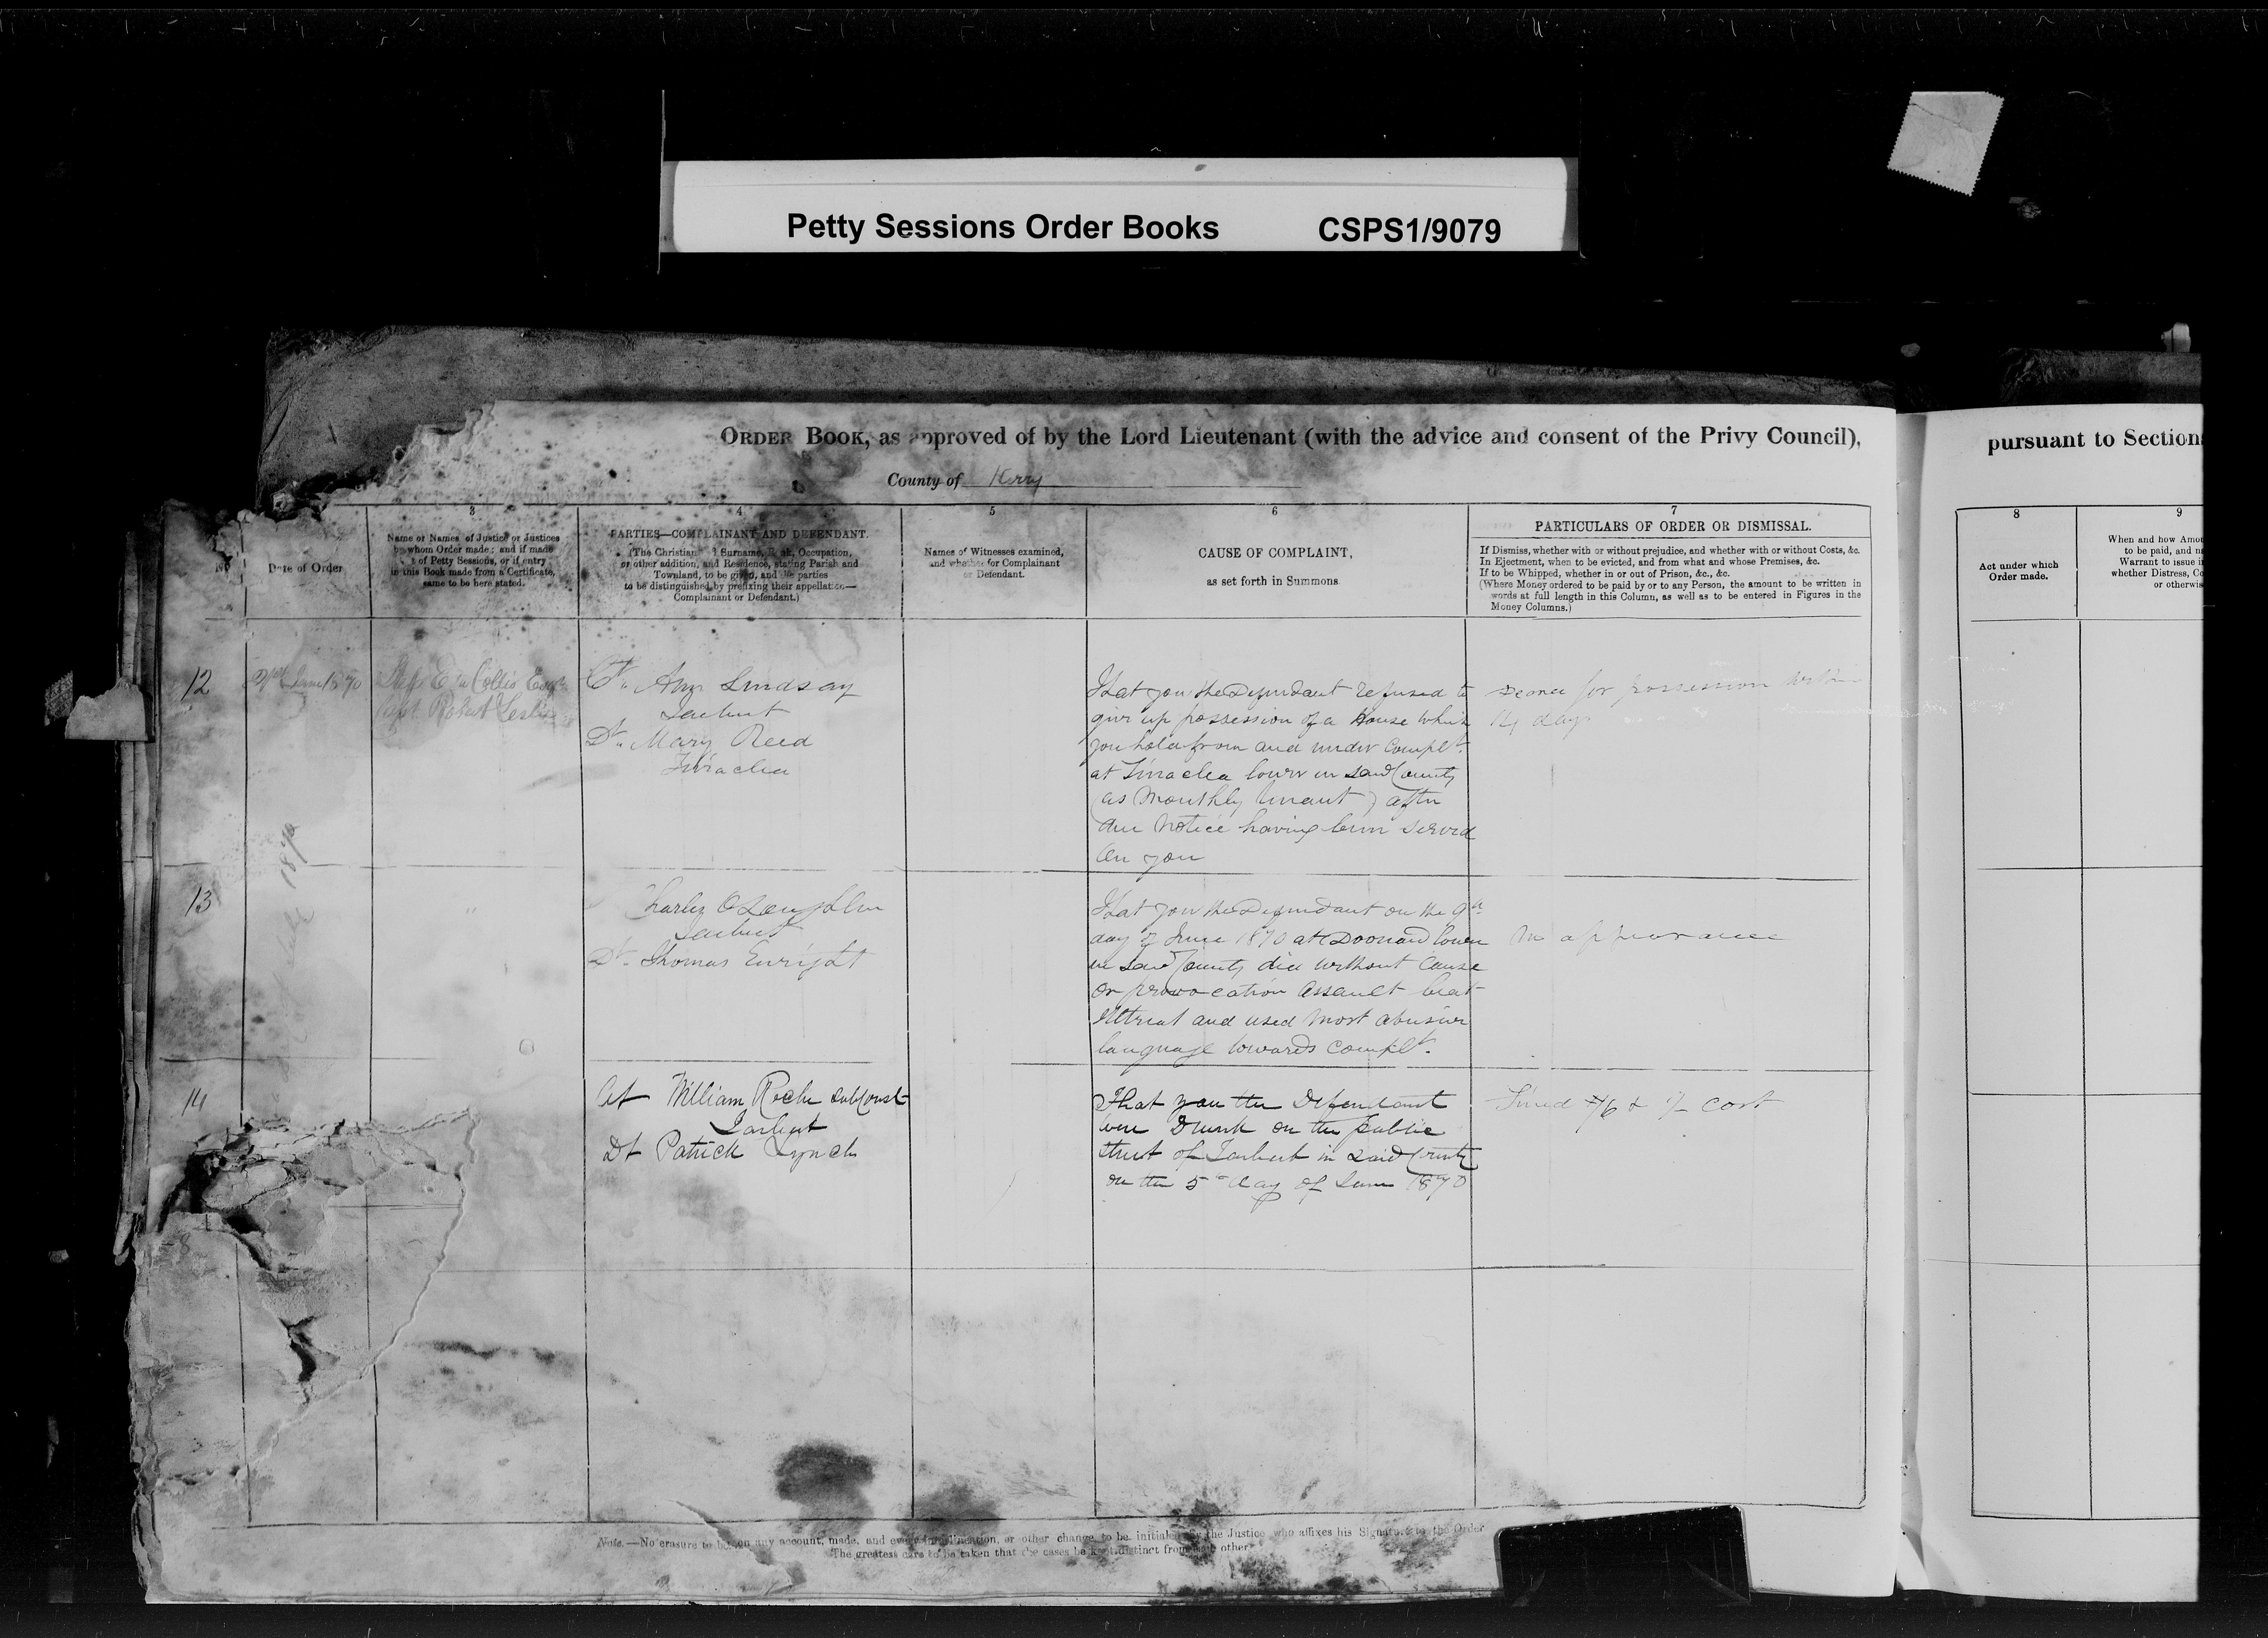 Petty Sessions Order Books CSPS1/9079
ORDER BOOK, as approved of by the Lord Lieutenant (with the advice and consent of the Privy Council),
pursuant to Section
County of Kerry
3
4
5
6
7
8
9
No
Date of Order
Name or Names of Justice or Justices
by whom Order made; and if made
t of Petty Sessions, or if entry
in this Book made from a Certificate,
same to be here stated.
PARTIES—COMPLAINANT AND DEFENDANT.
(The Christian Surname, Rank, Occupation,
or other addition, and Residence, stating Parish and
Townland, to be given, and the parties
to be distinguished by prefixing their appellation—
Complainant or Defendant.)
Names of Witnesses examined,
and whether for Complainant
or Defendant.
CAUSE OF COMPLAINT,
as set forth in Summons
PARTICULARS OF ORDER OR DISMISSAL.
If Dismiss, whether with or without prejudice, and whether with or without Costs, &c.
In Ejectment, when to be evicted, and from what and whose Premises, &c.
If to be Whipped, whether in or out of Prison, &c., &c.
(Where Money ordered to be paid by or to any Person, the amount to be written in
words at full length in this Column, as well as to be entered in Figures in the
Money Columns.)
Act under which
Order made.
When and how Amou
to be paid, and n
Warrant to issue i
whether Distress, Co
or otherwis
12
June 1870
Collis Esqr
Capt. Robert Leslie
Ct. Ann Lindsay
Tarbert
Dt. Mary Reed
That you the Defendant refused to
give up possession of a House which
you hold from and under Complt.
at lower in said County
(as Monthly tenant) after
due Notice having been served
on you
Decree for possession within
14 days
13
"
Charles OLoughlin
Tarbert
Dt. Thomas Enright
That you the Defendant on the 9th
day of June 1870 at Doonard lower
in said County did without Cause
or provocation Assault beat
illtreat and used Most abusive
language towards Complt.
No appearance
14
Ct William Roche SubConst
Tarbert
Dt Patrick Lynch
That you the Defendant
were Drunk on the public
Street of Tarbert in said County
on the 5th day of June 1870
Fined /6 & 1/- Cost
1870
Note.—No erasure to be, on any account, made, and every or other change, to be initialed by the Justice who affixes his Signature to the Order
The greatest care to be taken that the cases be kept distinct from each other.